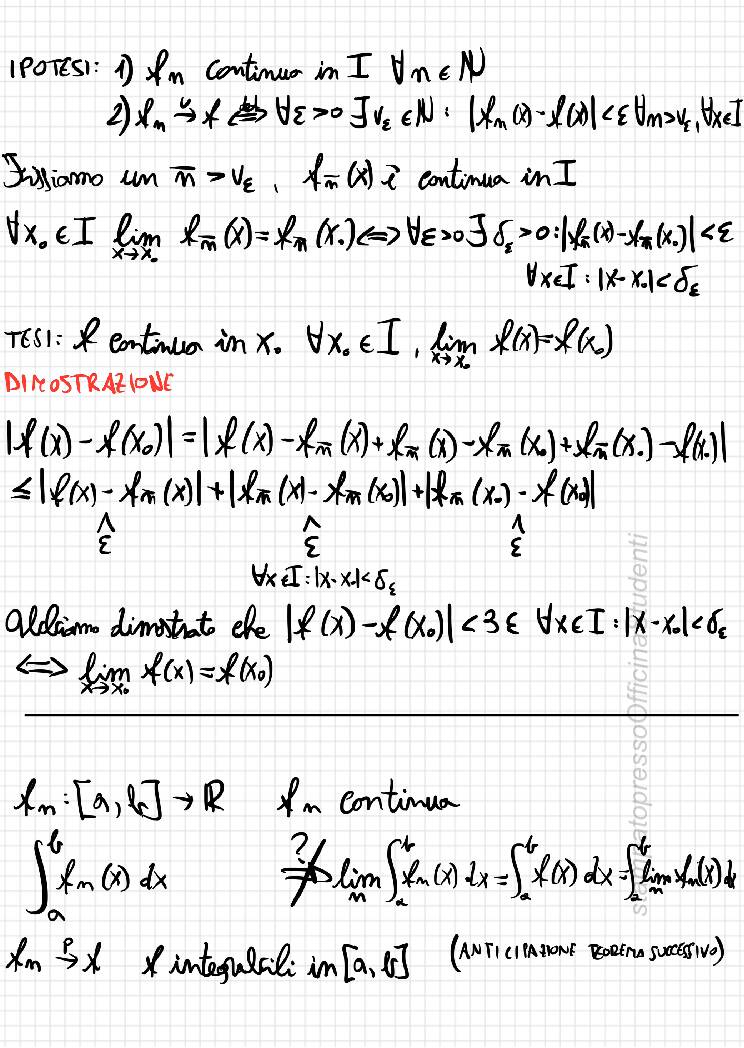 IPOTESI: 1) fn continua in I ∀n ∈ N
2) fn →ᵁ f ⟺ ∀ε>0 ∃ νε ∈ N : |fn(x) - f(x)| < ε ∀n>νε, ∀x∈I
Fissiamo un n̄ > νε, fn̄(x) è continua in I
∀x₀ ∈ I lim x→x₀ fn̄(x) = fn̄(x₀) ⟺ ∀ε>0 ∃ δε >0 : |fn̄(x) - fn̄(x₀)| < ε
∀x∈I : |x - x₀| < δε
TESI: f continua in x₀ ∀x₀ ∈ I, lim x→x₀ f(x) = f(x₀)
DIMOSTRAZIONE
|f(x) - f(x₀)| = |f(x) - fn̄(x) + fn̄(x) - fn̄(x₀) + fn̄(x₀) - f(x₀)|
≤ |f(x) - fn̄(x)| + |fn̄(x) - fn̄(x₀)| + |fn̄(x₀) - f(x₀)|
∧ ∧ ∧
ε ε ε
∀x∈I : |x - x₀| < δε
Abbiamo dimostrato che |f(x) - f(x₀)| < 3ε ∀x∈I : |x - x₀| < δε
⟺ lim x→x₀ f(x) = f(x₀)
fn : [a, b] → R fn continua
∫ₐᵇ fn(x) dx ?⇏ lim n ∫ₐᵇ fn(x) dx = ∫ₐᵇ f(x) dx = ∫ₐᵇ lim n fn(x) dx
fn →ᴾ f f integrabili in [a, b] (ANTICIPAZIONE TEOREMA SUCCESSIVO)
stampatopressoOfficinaStudenti